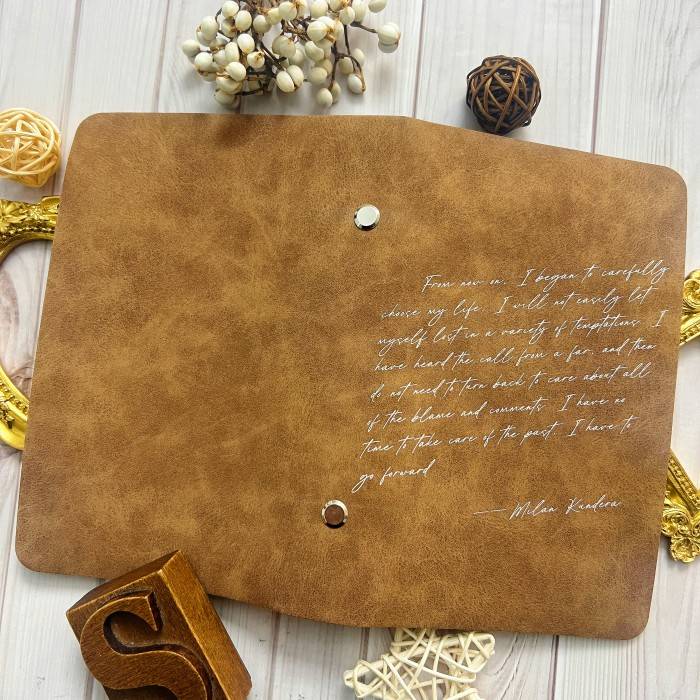 From now on, I began to carefully
choose my life. I will not easily let
myself lost in a variety of temptations. I
have heard the call from a far, and then
do not need to turn back to care about all
of the blame and comments. I have no
time to take care of the past. I have to
go forward
— Milan Kundera
S